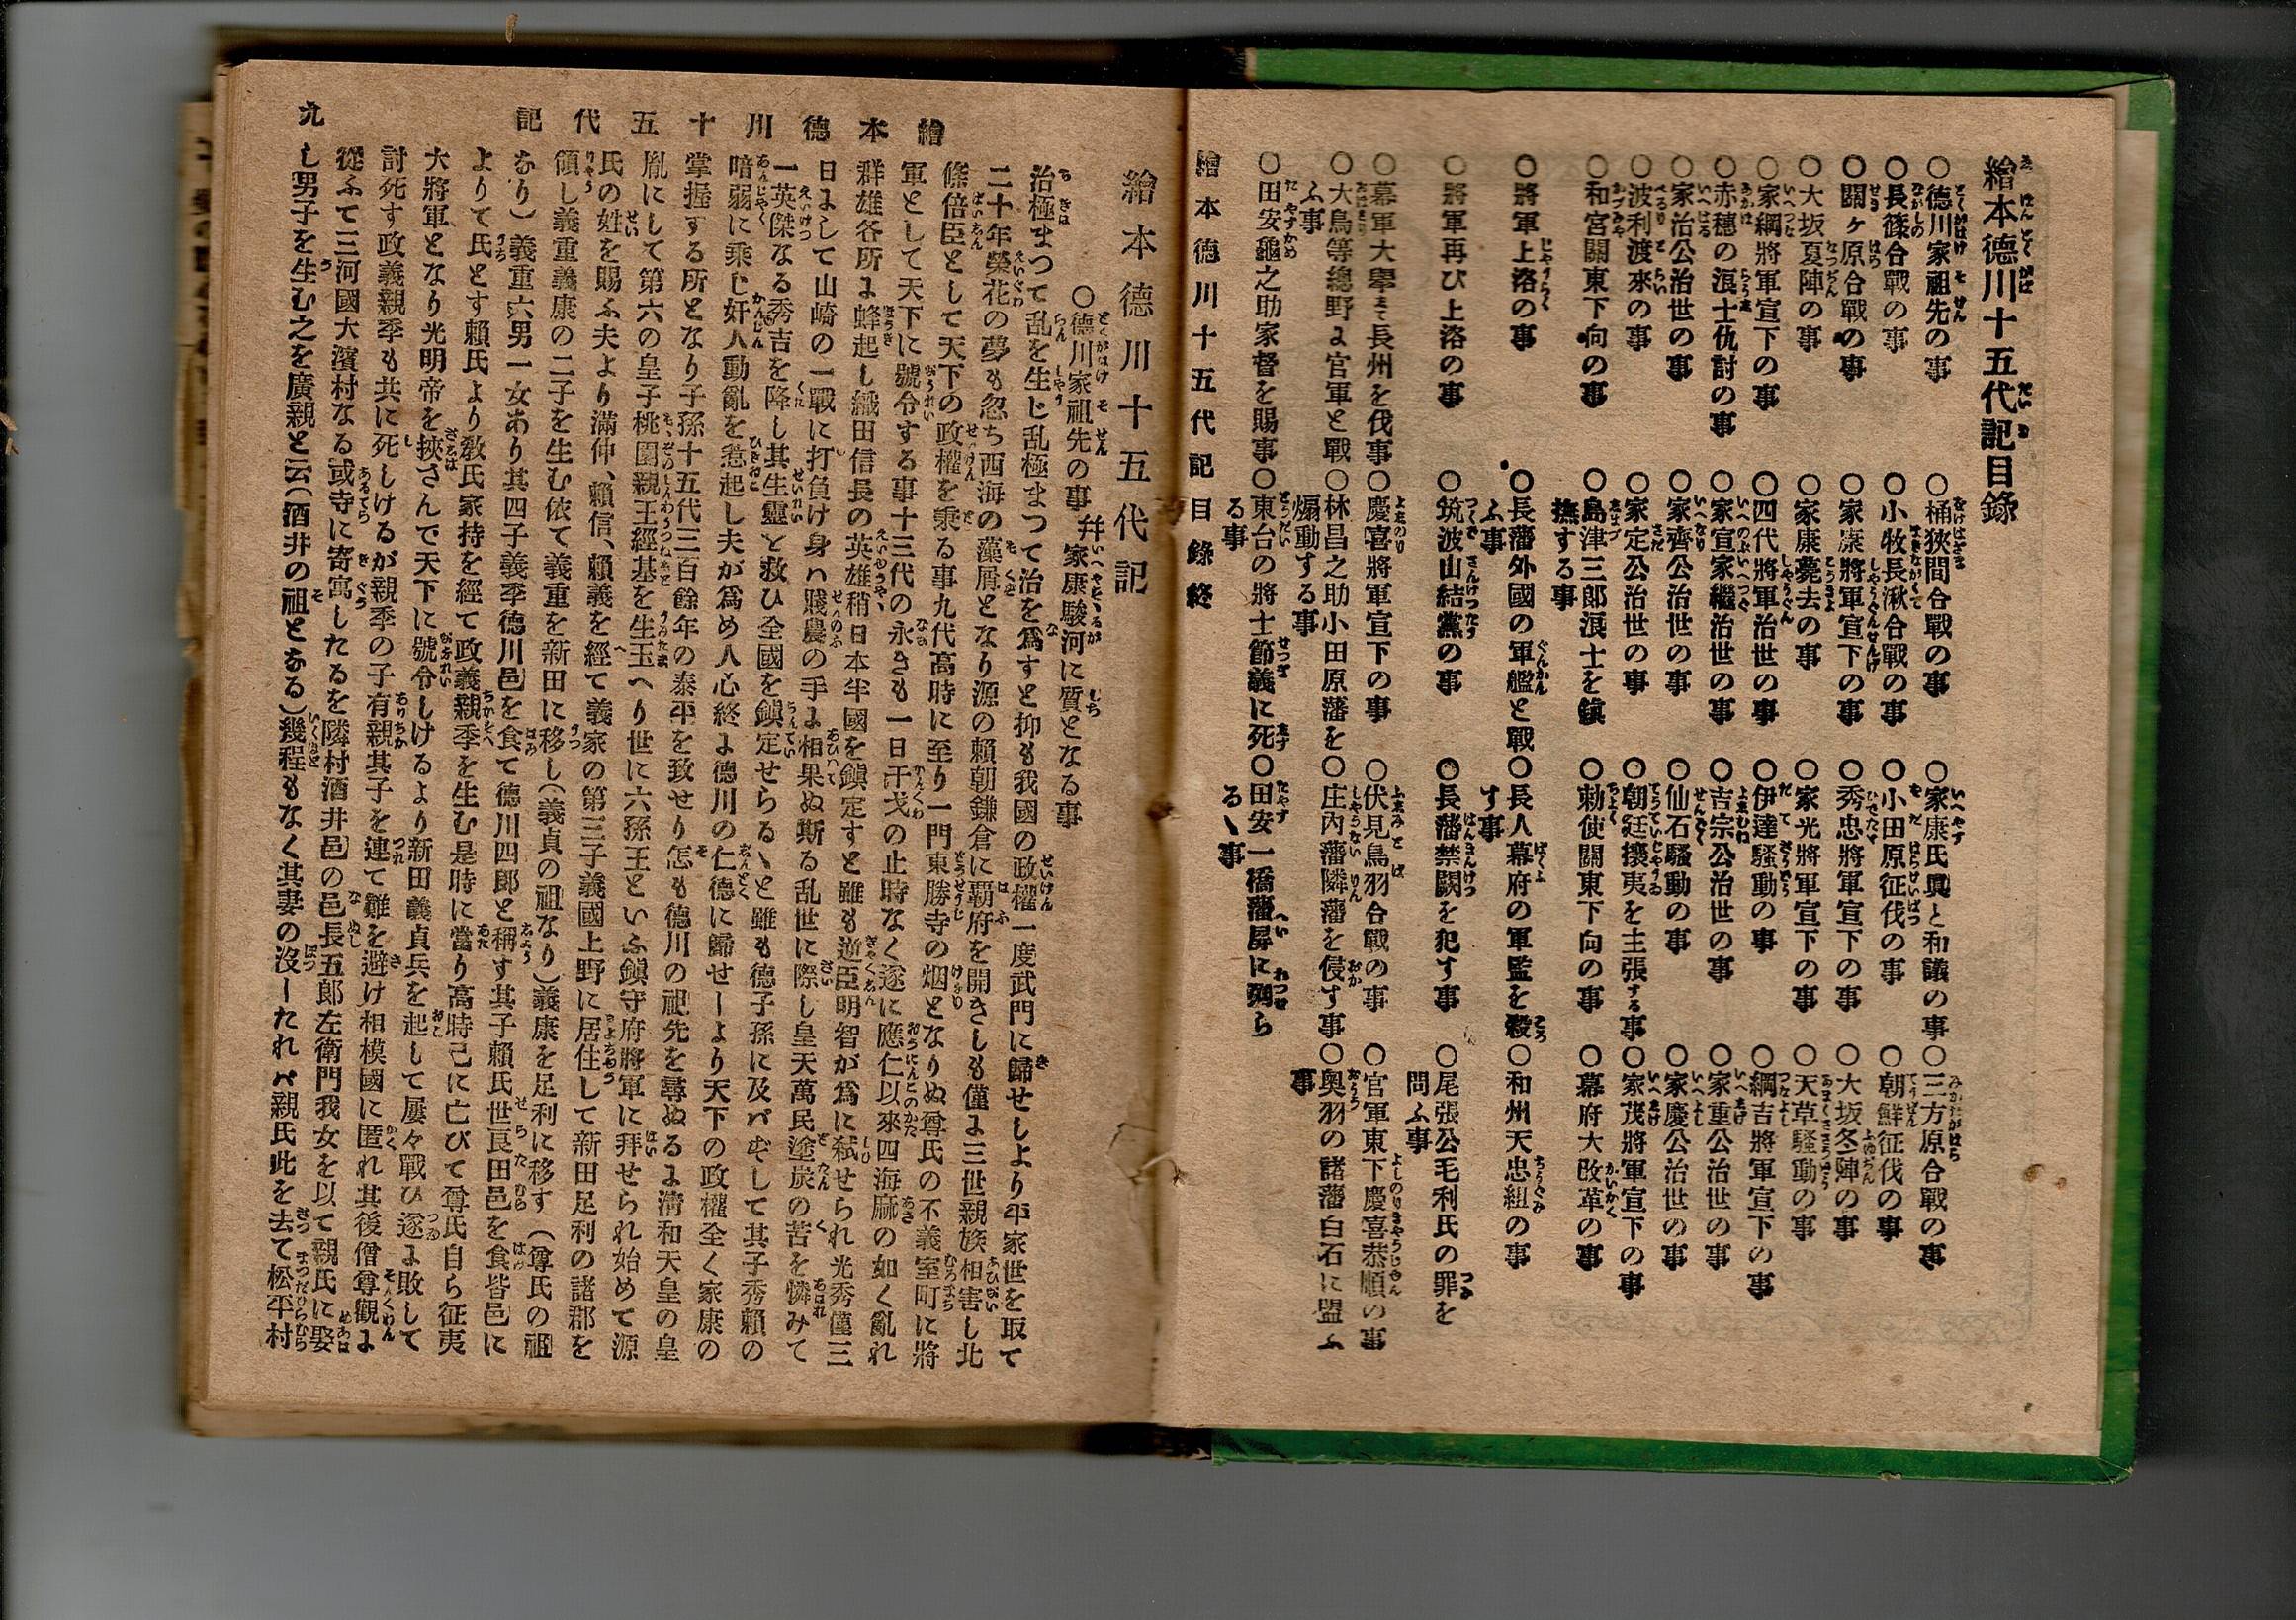 繪本德川十五代記目錄
〇德川家祖先の事
〇桶狹間合戰の事
〇家康氏眞と和議の事
〇三方原合戰の事
〇長篠合戰の事
〇小牧長湫合戰の事
〇小田原征伐の事
〇朝鮮征伐の事
〇關ヶ原合戰の事
〇家康將軍宣下の事
〇秀忠將軍宣下の事
〇大坂冬陣の事
〇大坂夏陣の事
〇家康薨去の事
〇家光將軍宣下の事
〇天草騷動の事
〇家綱將軍宣下の事
〇四代將軍治世の事
〇伊達騷動の事
〇綱吉將軍宣下の事
〇赤穗の浪士仇討の事
〇家宣家繼治世の事
〇吉宗公治世の事
〇家重公治世の事
〇家治公治世の事
〇家齊公治世の事
〇仙石騷動の事
〇家慶公治世の事
〇波利渡來の事
〇家定公治世の事
〇朝廷攘夷を主張する事
〇家茂將軍宣下の事
〇和宮關東下向の事
〇島津三郎浪士を鎭
撫する事
〇勅使關東下向の事
〇幕府大改革の事
〇將軍上洛の事
〇長藩外國の軍艦と戰
ふ事
〇長人幕府の軍監を殺
す事
〇和州天忠組の事
〇將軍再び上洛の事
〇筑波山結黨の事
〇長藩禁闕を犯す事
〇尾張公毛利氏の罪を
問ふ事
〇幕軍大擧して長州を伐事
〇慶喜將軍宣下の事
〇伏見鳥羽合戰の事
〇官軍東下慶喜恭順の事
〇大鳥等總野に官軍と戰
ふ事
〇林昌之助小田原藩を
煽動する事
〇庄內藩隣藩を侵す事
〇奧羽の諸藩白石に盟ふ
事
〇田安龜之助家督を賜事
〇東台の將士節義に死す
る事
〇田安一橋藩屏に列せら
るゝ事
繪本德川十五代記目錄終
繪本德川十五代記
〇德川家祖先の事幷家康駿河に質となる事
治極まつて乱を生じ乱極まつて治を爲すと抑も我國の政權一度武門に歸せしより平家世を取て
二十年榮花の夢も忽ち西海の藻屑となり源の賴朝鎌倉に覇府を開きしも僅に三世親族相害し北
條倍臣として天下の政權を乘る事九代高時に至り一門東勝寺の烟となりぬ尊氏の不義室町に將
軍として天下に號令する事十三代の永きも一日干戈の止時なく遂に應仁以來四海麻の如く亂れ
群雄各所に蜂起し織田信長の英雄稍日本半國を鎭定すと雖も逆臣明智が爲に弑せられ光秀僅三
日にして山崎の一戰に打負け身ハ賤農の手に相果ぬ斯る乱世に際し皇天萬民塗炭の苦を憐みて
一英傑なる秀吉を降し其生靈を救ひ全國を鎭定せらるゝと雖も德子孫に及バずして其子秀賴の
暗弱に乘じ奸人動亂を惹起し夫が爲め人心終に德川の仁德に歸せしより天下の政權全く家康の
掌握する所となり子孫十五代三百餘年の泰平を致せり怎も德川の祖先を尋ぬるに淸和天皇の皇
胤にして第六の皇子桃園親王經基を生玉へり世に六孫王といふ鎭守府將軍に拜せられ始めて源
氏の姓を賜ふ夫より滿仲、賴信、賴義を經て義家の第三子義國上野に居住して新田足利の諸郡を
領し義重義康の二子を生む依て義重を新田に移し(義貞の祖なり)義康を足利に移す(尊氏の祖
なり)義重六男一女あり其四子義季德川邑を食て德川四郎と稱す其子賴氏世良田邑を食皆邑に
よりて氏とす賴氏より敎氏家持を經て政義親季を生む是時に當り高時己に亡びて尊氏自ら征夷
大將軍となり光明帝を挾さんで天下に號令しけるより新田義貞兵を起して屢々戰ひ遂に敗して
討死す政義親季も共に死しけるが親季の子有親其子を連て難を避け相模國に匿れ其後僧尊觀に
從ふて三河國大濱村なる或寺に寄寓したるを隣村酒井邑の邑長五郎左衛門我女を以て親氏に娶
し男子を生む之を廣親と云(酒井の祖となる)幾程もなく其妻の沒したれバ親氏此を去て松平村
繪本德川十五代記
九